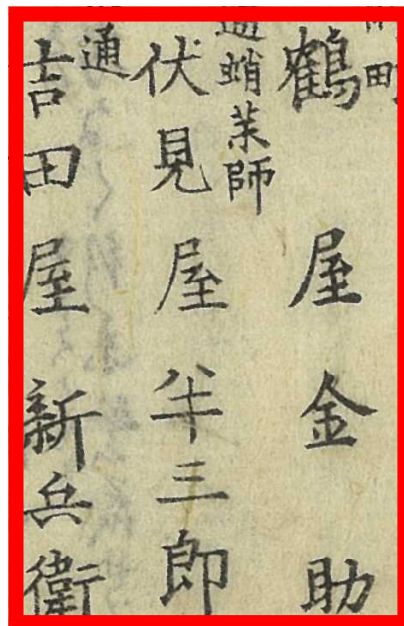 町
鶴屋金助
蛸薬師
伏見屋半三郎
通
吉田屋新兵衛